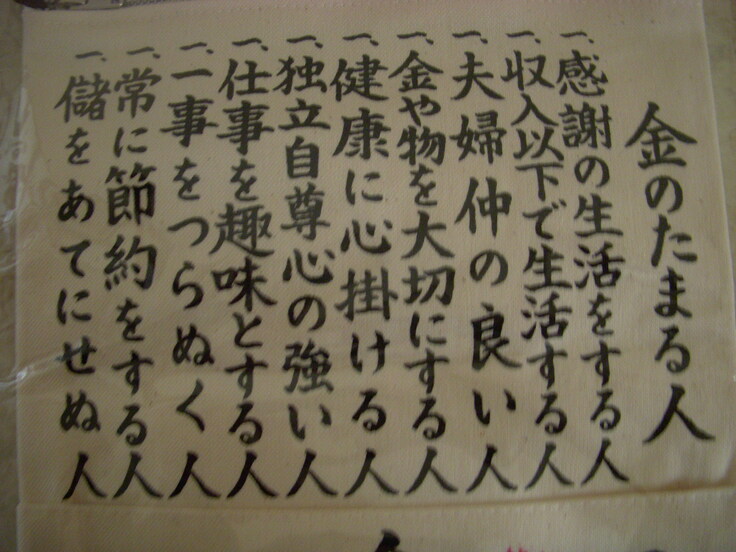 金のたまる人
一、感謝の生活をする人
一、収入以下で生活する人
一、夫婦仲の良い人
一、金や物を大切にする人
一、健康に心掛ける人
一、独立自尊心の強い人
一、仕事を趣味とする人
一、一事をつらぬく人
一、常に節約をする人
一、儲をあてにせぬ人